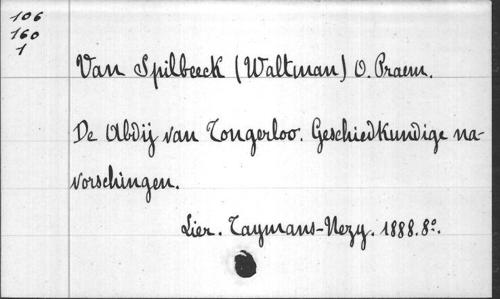 106
160
1
Van Spilbeeck (Waltman) O. Praem.
De Abdij van Tongerloo. Geschiedkundige na-
vorschingen.
Lier. Taymans-Nezy. 1888. 8º.